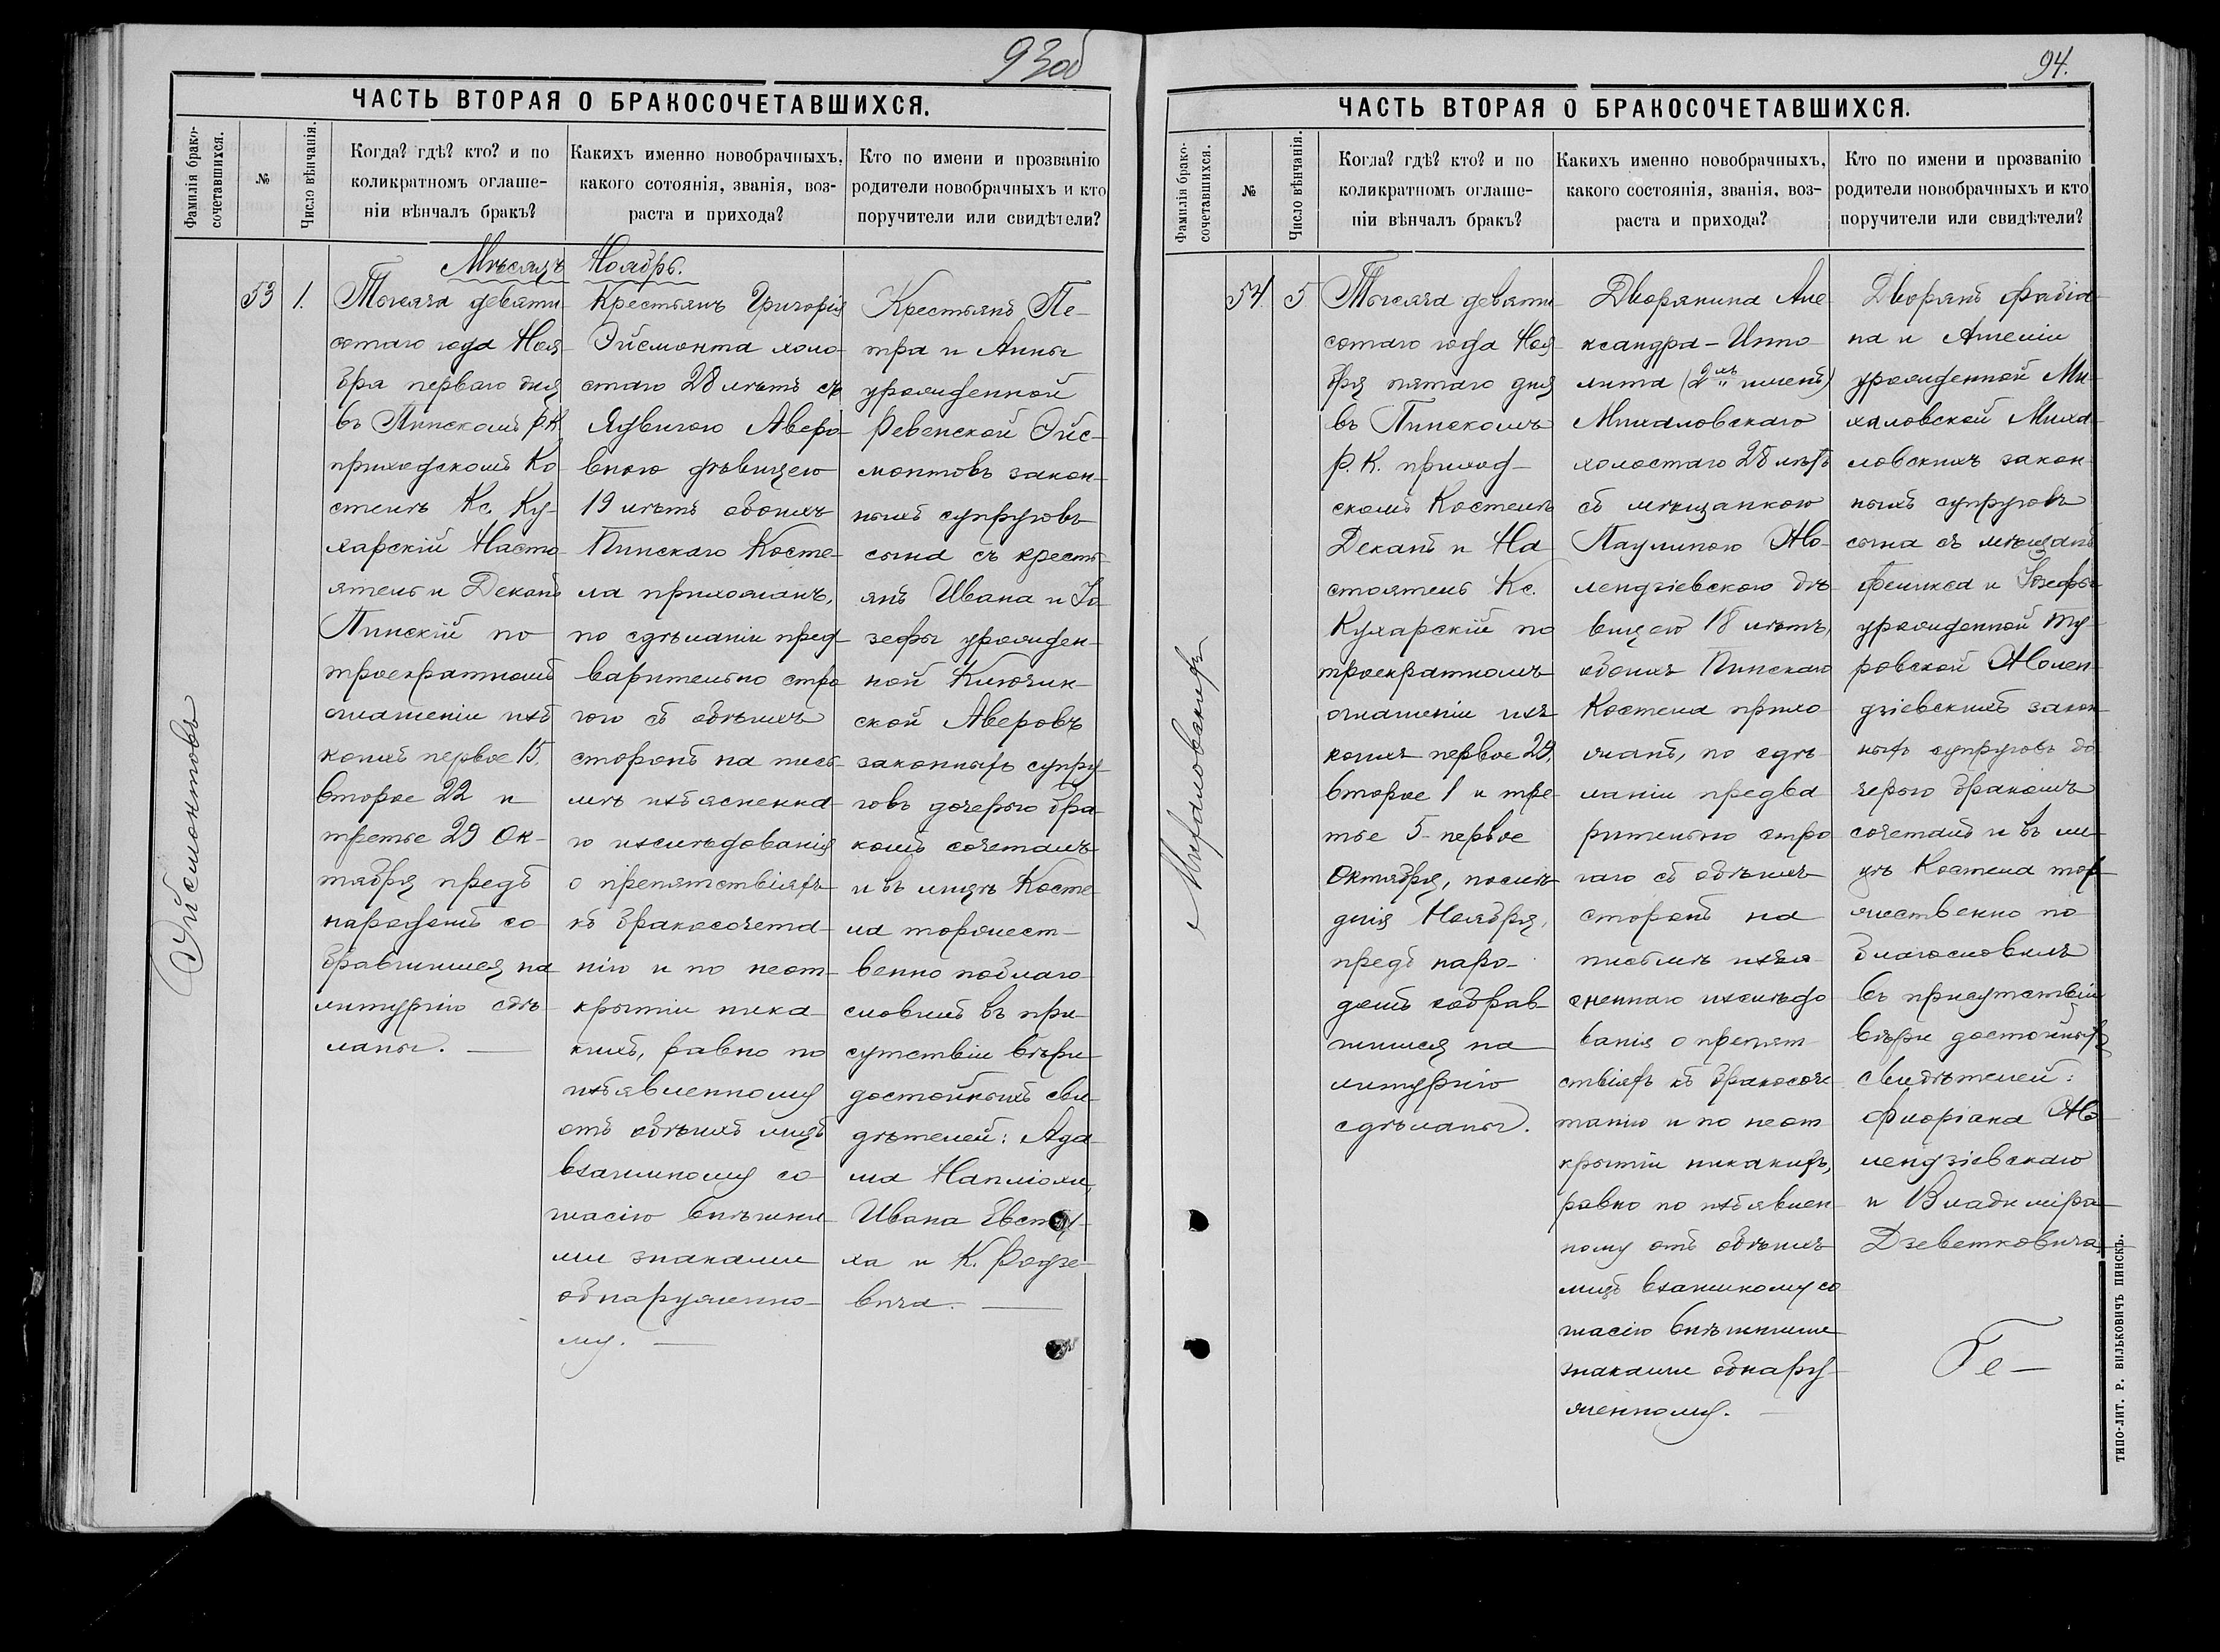 93об
ЧАСТЬ ВТОРАЯ О БРАКОСОЧЕТАВШИХСЯ.
Фамилія брако-
сочетавшихся.
№
Число вѣнчанія.
Когда? гдѣ? кто? и по
коликратномъ оглаше-
ніи вѣнчалъ бракъ?
Какихъ именно новобрачныхъ,
какого сотоянія, званія, воз-
раста и прихода?
Кто по имени и прозванію
родители новобрачныхъ и кто
поручители или свидѣтели?
Мѣсяцъ Ноябрь.
Эйсмонтовъ
53
1.
Тысяча девяти-
сотаго года Ноя-
бря перваго дня
въ Пинскомъ Р.К.
приходскомъ Ко-
стелѣ Кс. Ку-
харскій Насто-
ятель и Деканъ
Пинскій по
троекратномъ
оглашеніи изъ
коихъ первое 15,
второе 22 и
третье 29 Ок-
тября предъ
народомъ со-
бравшимся на
литургію сдѣ-
ланы. —
Крестьянъ Григорія
Эйсмонта холо-
стаго 28 лѣтъ съ
Ядвигою Аверо-
вною дѣвицею
19 лѣтъ обоихъ
Пинскаго Косте-
ла прихожанъ,
по сдѣланіи пред-
варительно стро-
гого съ обѣихъ
сторонъ на пись-
мѣ изъясненна-
го изслѣдованія
о препятствіяхъ
къ бракосочета-
нію и по неот-
крытіи ника-
кихъ, равно по
изъявленному
отъ обѣихъ лицъ
взаимному со-
гласію внѣшни-
ми знаками
обнаруженно-
му. —
Крестьянъ Пе-
тра и Анны
урожденной
Ревенской Эйс-
монтовъ закон-
ныхъ супруговъ
сына съ кресть-
янъ Ивана и Іо-
зефы урожден-
ной Ключин-
ской Аверовъ
законныхъ супру-
говъ дочерью бра-
комъ сочеталъ
и въ лицѣ Косте-
ла торжест-
венно поблаго-
словилъ въ при-
сутствіи вѣры
достойныхъ сви-
дѣтелей: Ада-
ма Наплюхи,
Ивана Евсту-
ха и К. Родзе-
вича. —
94.
ЧАСТЬ ВТОРАЯ О БРАКОСОЧЕТАВШИХСЯ.
Фамилія брако-
сочетавшихся.
№
Число вѣнчанія.
Когда? гдѣ? кто? и по
коликратномъ оглаше-
ніи вѣнчалъ бракъ?
Какихъ именно новобрачныхъ,
какого состоянія, званія, воз-
раста и прихода?
Кто по имени и прозванію
родители новобрачныхъ и кто
поручители или свидѣтели?
Михаловскихъ
54.
5
Тысяча девяти-
сотаго года Ноя-
бря пятаго дня
въ Пинскомъ
Р. К. приход-
скомъ Костелѣ
Деканъ и На-
стоятель Кс.
Кухарскій по
троекратномъ
оглашеніи изъ
коихъ первое 29,
второе 1 и тре-
тье 5 первое
Октября, послѣ-
днія Ноября,
предъ наро-
домъ собрав-
шимся на
литургію
сдѣланы.
Дворянина Але-
ксандра-Иппо-
лита (2хъ именъ)
Михаловскаго
холостаго 28 лѣтъ
съ мѣщанкою
Паулиною Мо-
лендзіевскою дѣ-
вицею 18 лѣтъ,
обоихъ Пинскаго
Костела прихо-
жанъ, по сдѣ-
ланіи предва-
рительно стро-
гаго съ обѣихъ
сторонъ на
письмѣ изъя-
сненнаго изслѣдо-
ванія о препят-
ствіяхъ къ бракосоче-
танію и по неот-
крытіи никакихъ,
равно по изъявлен-
ному отъ обѣихъ
лицъ взаимному со-
гласію внѣшними
знаками обнару-
женному. —
Дворянъ Фабіа-
на и Амеліи
урожденной Ми-
халовской Миха-
ловскихъ закон-
ныхъ супруговъ
сына съ мѣщанъ
Феликса и Юзефы
урожденной Ту-
ровской Молен-
дзіевскихъ закон-
ныхъ супруговъ до-
черью бракомъ
сочеталъ и въ ли-
цѣ Костела тор-
жественно по-
благословилъ
въ присутствіи
вѣры достойныхъ
свидѣтелей:
Флоріана Мо-
лендзіевскаго
и Владиміра
Дзеветковича.
ТИПО-ЛИТ. Р. ВИЛЬКОВИЧЪ ПИНСКЪ.